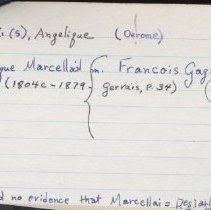 (s), Angelique (Derome)
que Marcellais m. Francois Gag
(1804c - 1879 Gervais, P. 34)
d no evidence that Marcellai = Deslau